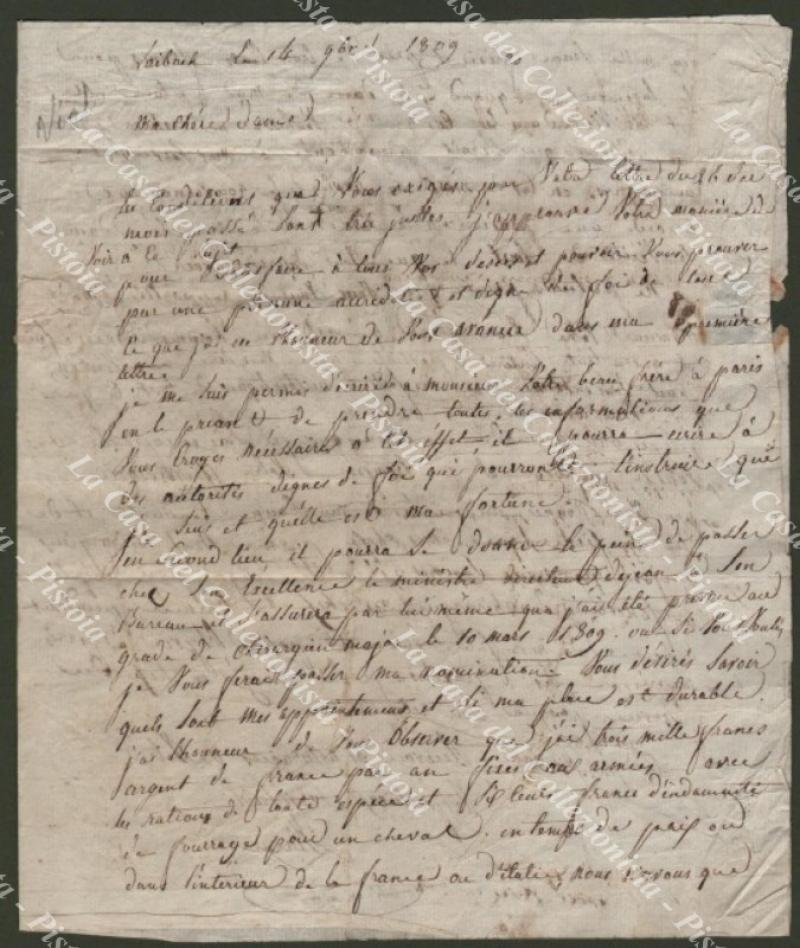 Laibach Le 14 9bre 1809
Ma chère dame
les Conditions que Vous exigés par Votre lettre du 26 du
mois passé sont très justes, j'approuve Votre manière de
Voir à ce sujet
pour satisfaire à tous Vos desirs et pouvoir Vous prouver
par une personne accreditée et digne de foi de tout
Ce que j'ai eu l'honneur de Vous avancer dans ma première
lettre
je me suis permis d'écrire à monsieur Votre beau frère à paris
en le priant de prendre toutes les informations que
Vous Croyés nécessaires à cet effet il pourra écrire à
des autorités dignes de foi qui pourront l'instruire qui
je suis et quelle est ma fortune
en second lieu il pourra se donner la peine de passer
chez Son Excellence le ministre directeur dejean à Son
Bureau et s'assurera par lui même que j'ai été promu au
grade de chirurgien major le 10 mars 1809. ou Si Vous Voulés
je Vous ferai passer ma nomination. Vous désirés Savoir
quels sont mes appointemens et si ma place est durable.
j'ai l'honneur de Vous Observer que j'ai trois mille francs
argent de france par an fixes aux armées avec
les rations de toute espèce et francs d'indemnité
de fourrage pour un cheval. en temps de paix ou
dans l'intérieur de la france ou d'italie nous n'avons que
La Casa del Collezionista - Pistoia